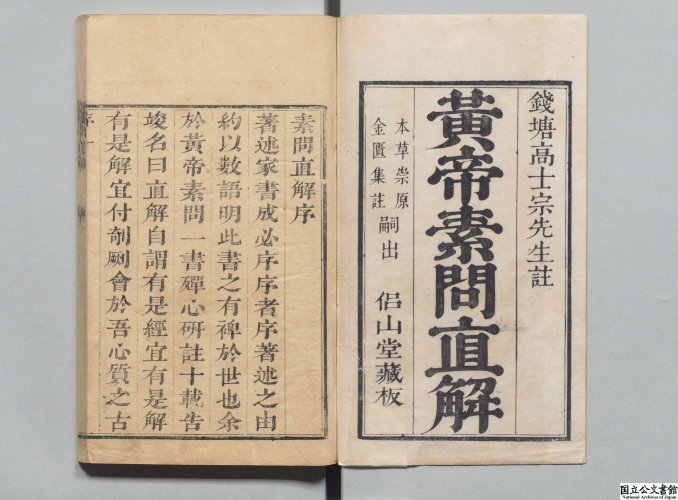 錢塘高士宗先生註
黃帝素問直解
本草崇原
金匱集註
嗣出
侶山堂藏板
素問直解序
著述家書成必序序者序著述之由
約以數語明此書之有裨於世也余
於黃帝素問一書殫心研註十載告
竣名曰直解自謂有是經宜有是解
有是解宜付剞劂會於吾心質之古
序
一
国立公文書館
National Archives of Japan